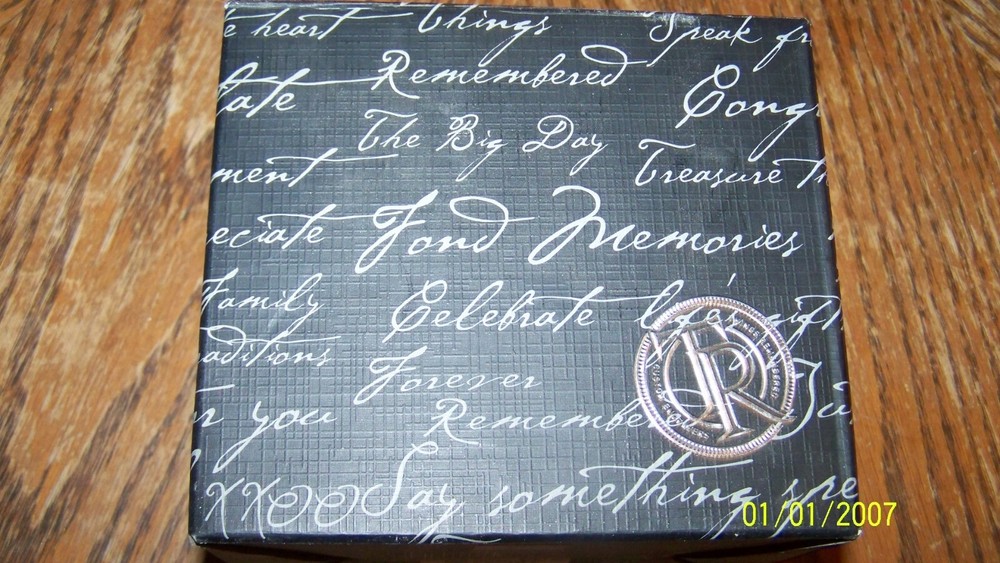 e heart Things Speak fr
Remembered
ate Cong
The Big Day
ment Treasure Th
eciate Fond Memories
Family Celebrate life's gift
aditions
Forever
r you Remembered
XXOO Say something spe
R
THINGS REMEMBERED
01/01/2007